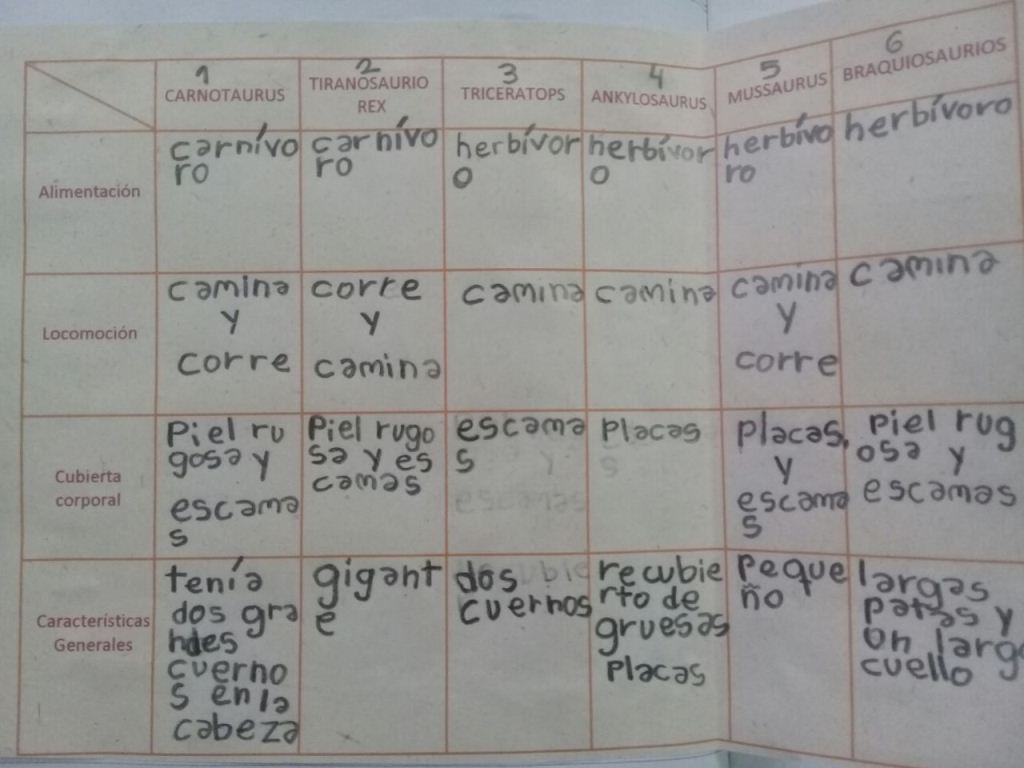 1 2 3 4 5 6
CARNOTAURUS TIRANOSAURIO REX TRICERATOPS ANKYLOSAURUS MUSSAURUS BRAQUIOSAURIOS
Alimentación
carnívo
ro
carnívo
ro
herbívor
o
herbívor
o
herbívo
ro
herbívoro
Locomoción
camina
y
corre
corre
y
camina
camina
camina
camina
y
corre
camina
Cubierta
corporal
Piel ru
gosa y
escama
s
Piel rugo
sa y es
camas
escama
s
Placas
placas,
y
escama
s
piel rug
osa y
escamas
Características
Generales
tenía
dos gra
ndes
cuerno
s en la
cabeza
gigant
e
dos
cuernos
recubie
rto de
gruesas
placas
Peque
ño
largas
patas y
un largo
cuello